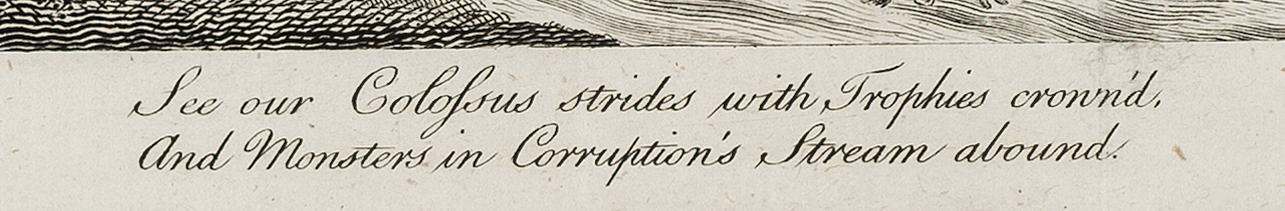 See our Coloſsus strides with Trophies crown'd,
And Monsters in Corruption's Stream abound.